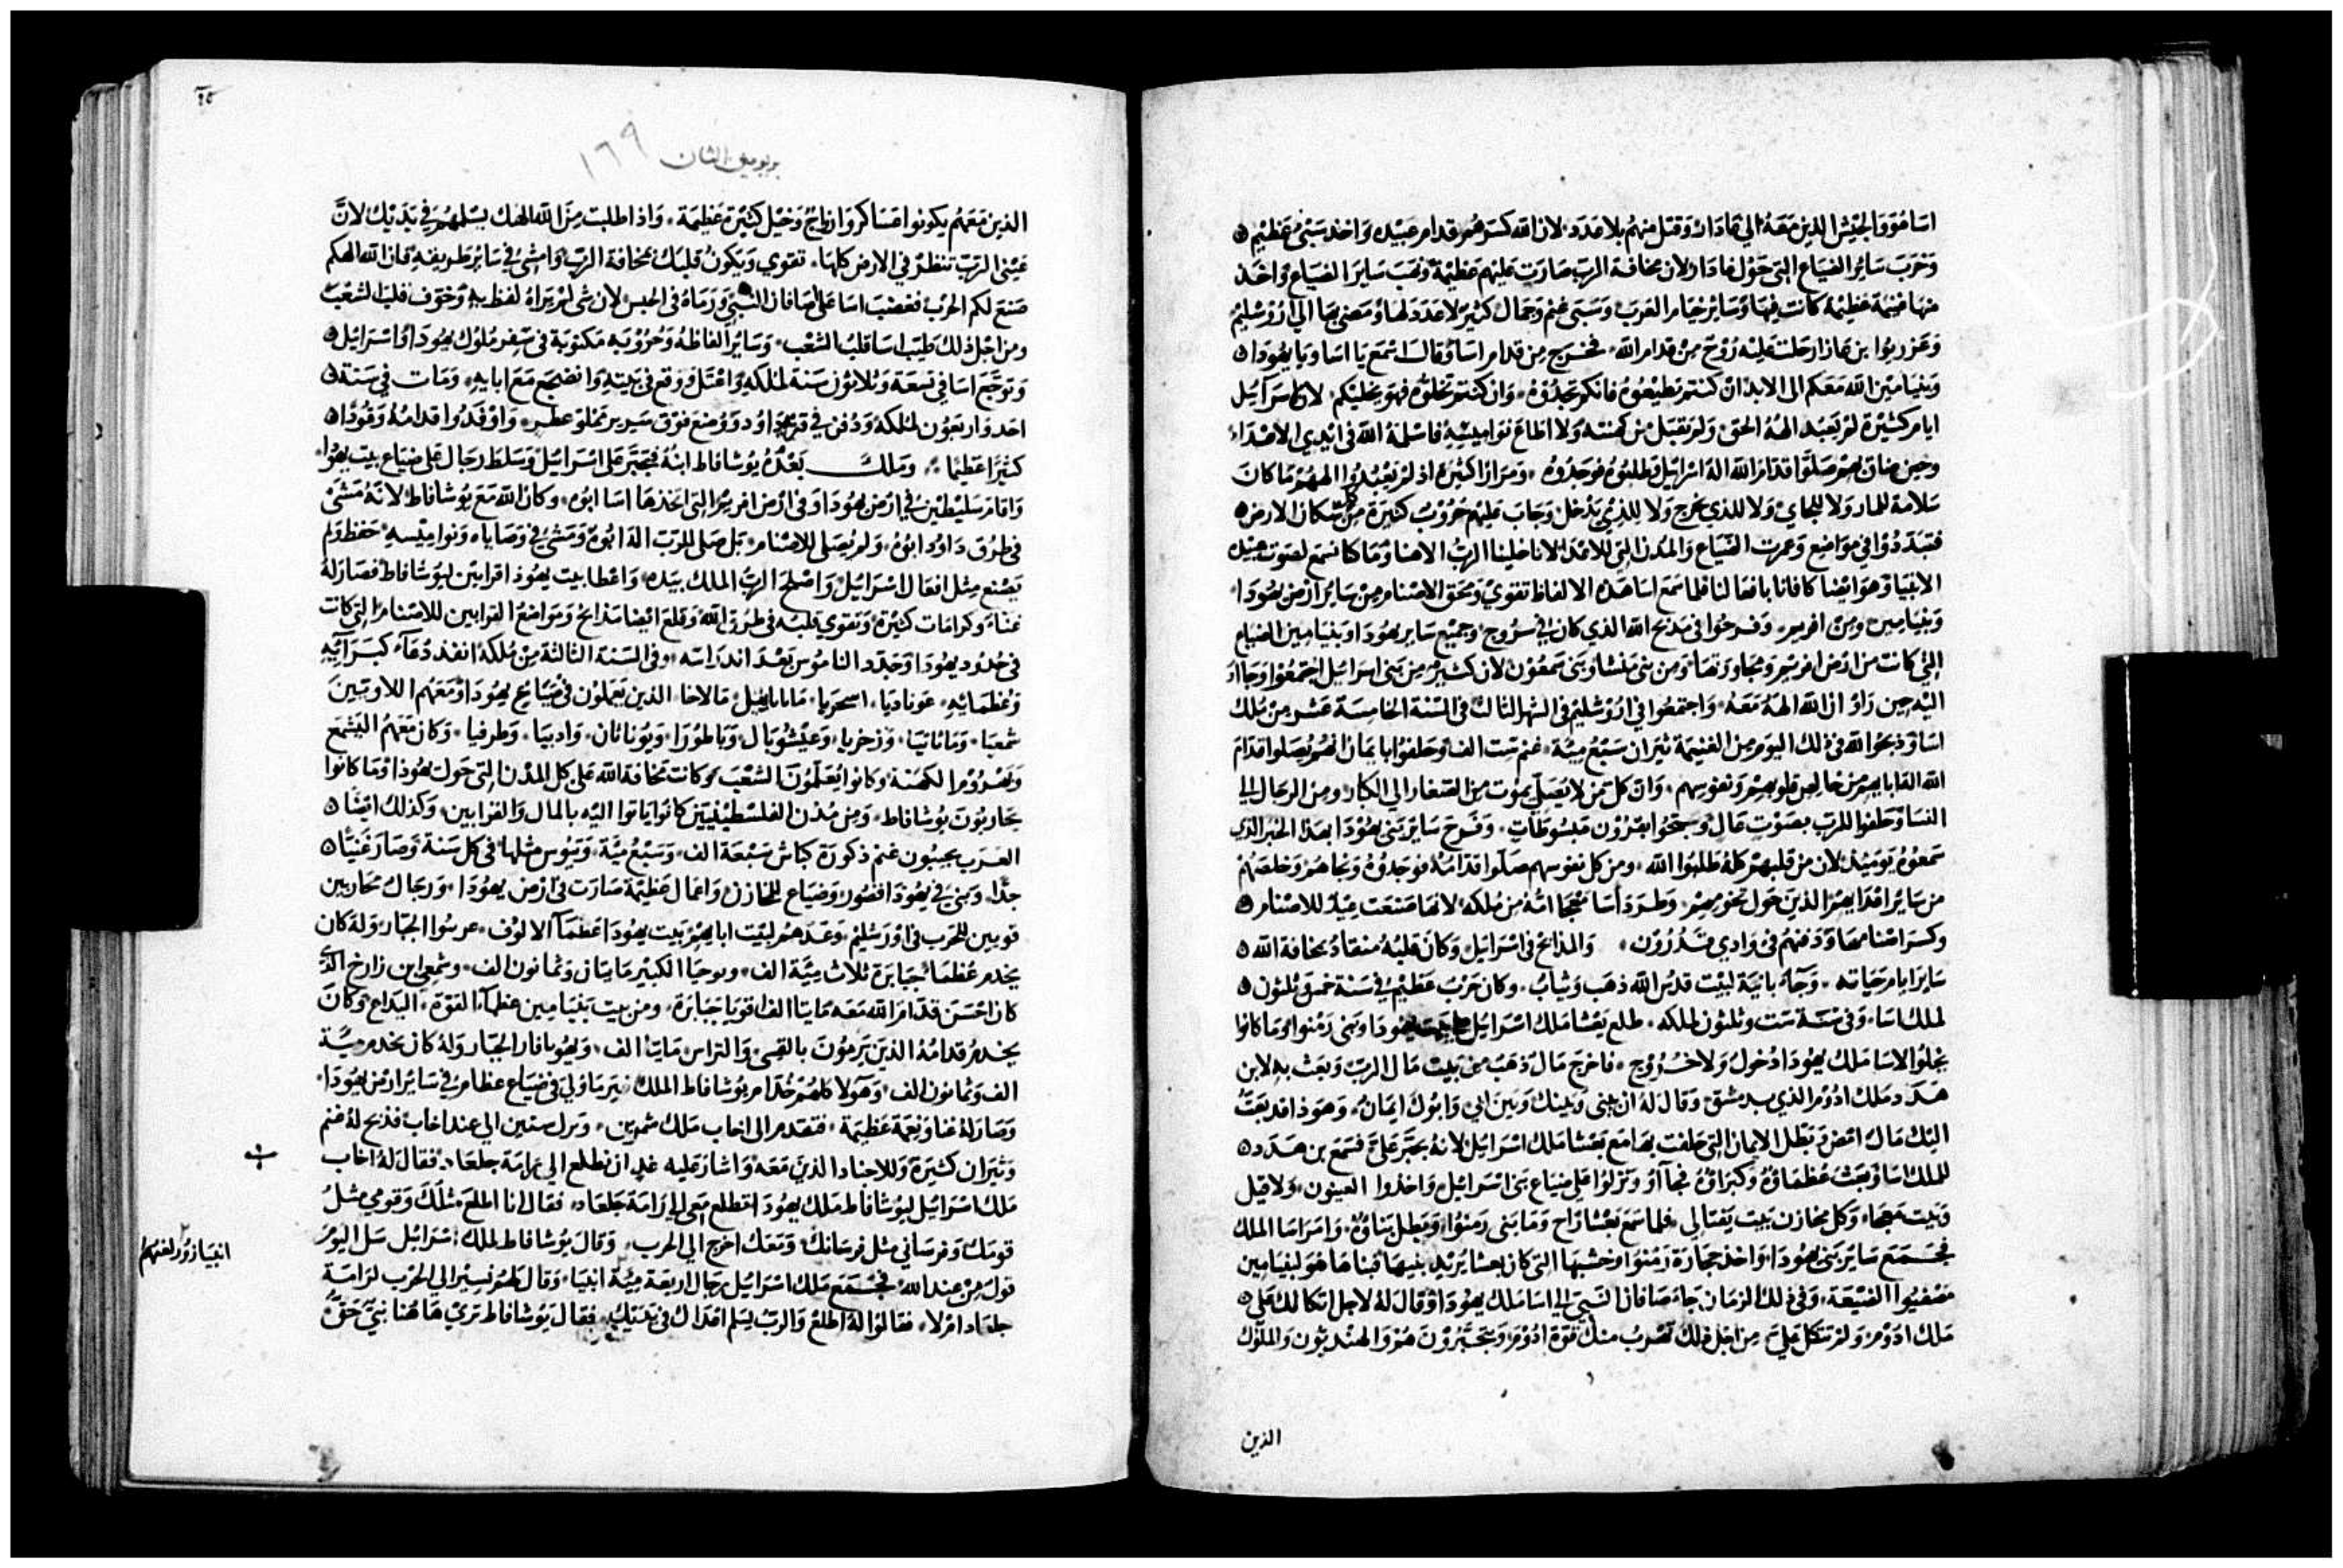 اسا هو والجيش الذين معه الي غادار وقتل منهم بلا عدد لان الله كسرهم قدام عبيده واخذ سبي عظيم
وخرب ساير الضياع التي حول غادار لان مخافة الرب صارت عليهم عظيمة ونهب ساير الضياع واخذ
منها غنيمة عظيمة كانت فيها وساير خيام العرب وسبي غنم وجمال كثير لا عدد لها ومضي بها الي اورشليم
وعزريوا بن عازار حلت عليه روح من قدام الله فخرج من قدام اسا وقال اسمع يا اسا ويا يهودا
وبنيامين الله معكم الى الابد ان كنتم تطيعوه فانكم تجدوه وان كنتم تخلوه فهو يخليكم لان اسرائيل
ايام كثيرة لم تعبد اله الحق ولم تقبل من كهنته ولا اطاع نواميسه فاسلمه الله في ايدي الاعداء
وحين ضاق بهم صلوا قدام الله اله اسرائيل وطلبوه فوجدوه ومرارا كثيرة اذ لم يعبدوا الههم ما كان
سلامة للمار ولا للجاي ولا للذي يخرج ولا للذي يدخل وجاب عليهم حروب كثيرة من كل سكان الارض
فتبددوا في مواضع وعمرت الضياع والمدن التي للاعدا لاننا خلينا الرب الاهنا وما كنا نسمع لصوت عبيده
الانبيا وهو ايضا كافانا بافعالنا فلما سمع اسا هذه الالفاظ تقوي ومحق الاصنام من ساير ارض يهودا
وبنيامين ومن افريم وفرحوا في مذبح الله الذي كان في سروج وجميع ساير يهودا وبنيامين الضياع
التي كانت من ارض افريم ومجاورتها ومن بني منشا وبني شمعون لان كثير من بني اسرائيل اجتمعوا وجااو
اليه حين راو ان الله الهه معه واجتمعوا في اورشليم في الشهر الثالث في السنة الخامسة عشر من ملك
اسا وذبحوا لله في ذلك اليوم من الغنيمة ثيران سبع مية غنم ست الف وحلفوا بايمان انهم يصلوا قدام
الله اله ابايهم من خالص قلوبهم ونفوسهم وان كل من لا يصلي يموت من الصغار الي الكبار ومن الرجال الي
النسا وحلفوا للرب بصوت عال وسبحوا بقرون مبسوطات وفرح ساير بني يهودا بهذا الخبر الذي
سمعوه يوميذ لان من قلبهم كله طلبوا الله ومن كل نفوسهم صلوا قدامه فوجدوه ونجاهم وخلصهم
من ساير اعدايهم الذين حول تخومهم وطرد اسا امه من ملكه لانها صنعت عيد للاصنام
وكسر اصنامها ودفنهم في وادي قدرون والمذابح في اسرائيل وكان قلبه منقاد بمخافة الله
ساير ايام حياته وجاء بانية لبيت قدس الله ذهب وثياب وكان حرب عظيم في سنة خمس وثلثون
لملك اسا وفي سنة ست وثلثون لملكه طلع بعشا ملك اسرائيل يهودا وبني رمنوا وما كانوا
يخلوا لاسا ملك يهودا دخول ولا خروج فاخرج مال ذهب من بيت مال الرب وبعث به لابن
هدد ملك ادوم الذي بدمشق وقال له ان بيني وبينك وبين ابي وابوك ايمان وهوذا قد بعثت
اليك مال امض وبطل الايمان التي حلفت بها مع بعشا ملك اسرائيل لانه تجبر علي فسمع بن هدد
للملك اسا وبعث عظماوه وكبراوه فجااو ونزلوا علي ضياع بني اسرائيل واخذوا العينون
وكل مخازن بيت يفتالي فلما سمع بعشا راح وما بني رمنوا وبطل بناوه وامر اسا الملك
فجمع ساير بني يهودا واخذ حجارة رمنوا وخشبها التي كان بعشا يريد يبنيها فبنا ها هو لبنيامين
الضيعة وفي ذلك الزمان جاء صافان النبي الي اسا ملك يهودا وقال له لاجل اتكالك علي
ملك ادوم ولم تتكل علي من اجل ذلك تهرب منك قوة ادوم ويتجبرون هم والهنديون والملوك
الذين
بريومين الثان ١٦٩
الذين معهم يكونوا عساكر وازواج وخيل كثيرة عظيمة واذا طلبت من الله الهك يسلمهم في يديك لان
عيني الرب تنظر في الارض كلها تقوي ويكون قلبك بمخافة الرب وامشي في ساير طريقه فان الله الهكم
صنع لكم الحرب فغضب اسا على صافان النبي ورماه في الحبس لان شي لم يراه لفظ به وخوف قلب الشعب
ومن اجل ذلك طيب اسا قلب الشعب وساير الفاظه وحروبه مكتوبة في سفر ملوك يهودا واسرائيل
وتوجع اسا في تسعة وثلاثون سنة لملكه واعتل ووقع في بيته وانضجع مع ابايه ومات في سنة
احد واربعون لملكه ودفن في قرية داوود ووضع فوق سرير مملو عطر واوقدوا قدامه وقودا
كثيرا عظيما وملك بعده يوشافاط ابنه فتجبر على اسرائيل وسلط رجال على ضياع بيت يهوذا
واقام سليطين في ارض يهودا وفي ارض افريم التي اخذها اسا ابوه وكان الله مع يوشافاط لانه مشي
في طرق داود ابوه ولم يصلي للاصنام بل صلى للرب اله ابوه ومشي في وصاياه ونواميسه حفظ ولم
يصنع مثل افعال اسرائيل واصلح الرب الملك بيده واعطا بيت يهوذا قرابين ليوشافاط فصار له
غناء وكرامات كثيرة وتقوي قلبه في طرق الله وقلع ايضا مذابح ومواضع القرابين للاصنام التي كانت
في حدود يهودا وجدد الناموس بعد اندراسه وفي السنة الثالثة من ملكه انفذ دعاء كبرآيه
وعظمايه عونا ديا اسحريا الذين يعملون في ضياع يهودا ومعهم اللاوبين
شمعيا وماتانيا وزخريا ويوناثان وادبيا وطرفيا وكان معهم اليشمع
الكهنة وكانوا يعلمون الشعب وكانت مخافة الله علي كل المدن التي حول يهوذا وما كانوا
يحاربون يوشافاط ومن مدن الفلسطينيين كانوا ياتوا اليه بالمال والقرابين وكذلك ايضا
العرب يجيبون غنم ذكورة كباش سبعة الف وسبع مية وتيوس مثلها في كل سنة وصار غنيا
جدا وبني في يهودا قصور وضياع للخازن واعمال عظيمة صارت في ارض يهودا ورجال محاربين
قويين للحرب في اورشليم وعددهم لبيت ابايهم بيت يهودا عظما الالوف الجبار وله كان
يخدم عظما جبابرة ثلاث مية الف ويوحيا الكبير مايتان وثمانون الف وشمعي ابن زارخ الذي
كان احسن قدام الله معه مايتا الف اقويا جبابرة ومن بيت بنيامين عظمآ القوة وكان
يخدم قدامه الذين يرمون بالقسي والتراس مايتا الف الجبار وله كان يخدم مية
الف وثمانون الف وهولا كلهم خدام يوشافاط الملك في ضياع عظام في ساير ارض يهودا
وصار له غنا ونعمة عظيمة فتقدم الى اخاب ملك شمرين ونزل سنتين الي عند اخاب فذبح له غنم
وثيران كثيرة وللاجناد الذين معه واشار عليه ان يطلع الي رامة جلعاد فقال له اخاب
ملك اسرائيل ليوشافاط ملك يهودا تطلع معي الي رامة جلعاد فقال انا اطلع مثلك وقومي مثل
قومك وفرساني مثل فرسانك ومعك اخرج الي الحرب وقال يوشافاط لملك اسرائيل سل اليوم
قول من عند الله فجمع ملك اسرائيل رجال اربعة مية انبيا وقال لهم نسير الي الحرب لرامة
جلعاد ام لا فقالوا له اطلع والرب يسلم اعداك في يديك فقال يوشافاط ترى هاهنا نبي حق